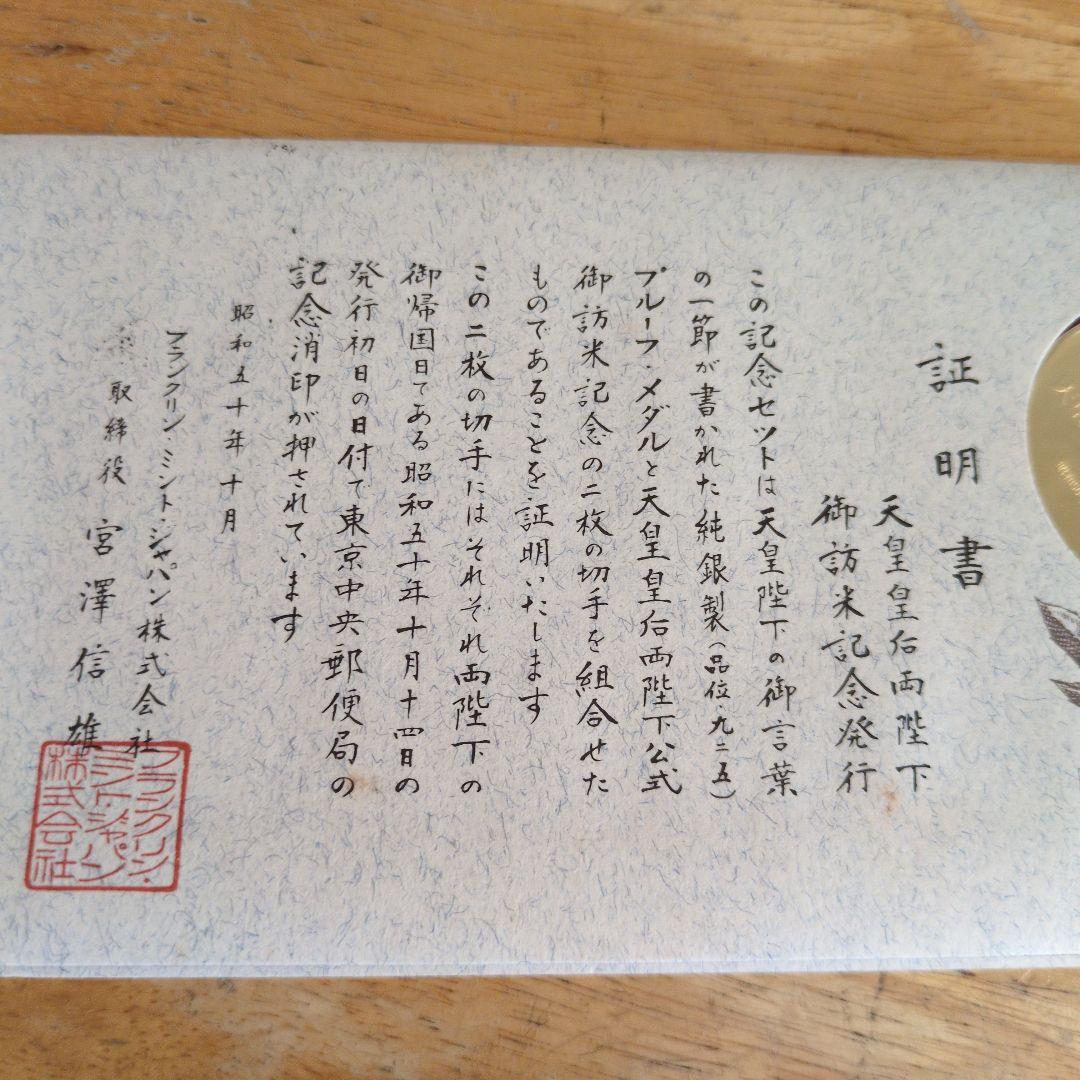 証明書
天皇皇后両陛下
御訪米記念発行
この記念セットは天皇陛下の御言葉
の一節が書かれた純銀製（品位・九二五）
プルーフ・メダルと天皇皇后両陛下公式
御訪米記念の二枚の切手を組合せた
ものであることを証明いたします
この二枚の切手にはそれぞれ両陛下の
御帰国日である昭和五十年十月十四日の
発行初日の日付で東京中央郵便局の
記念消印が押されています
昭和五十年十月
フランクリン・ミント・ジャパン株式会社
取締役 宮澤信雄
フランクリン・
ミント・ジャパン
株式会社